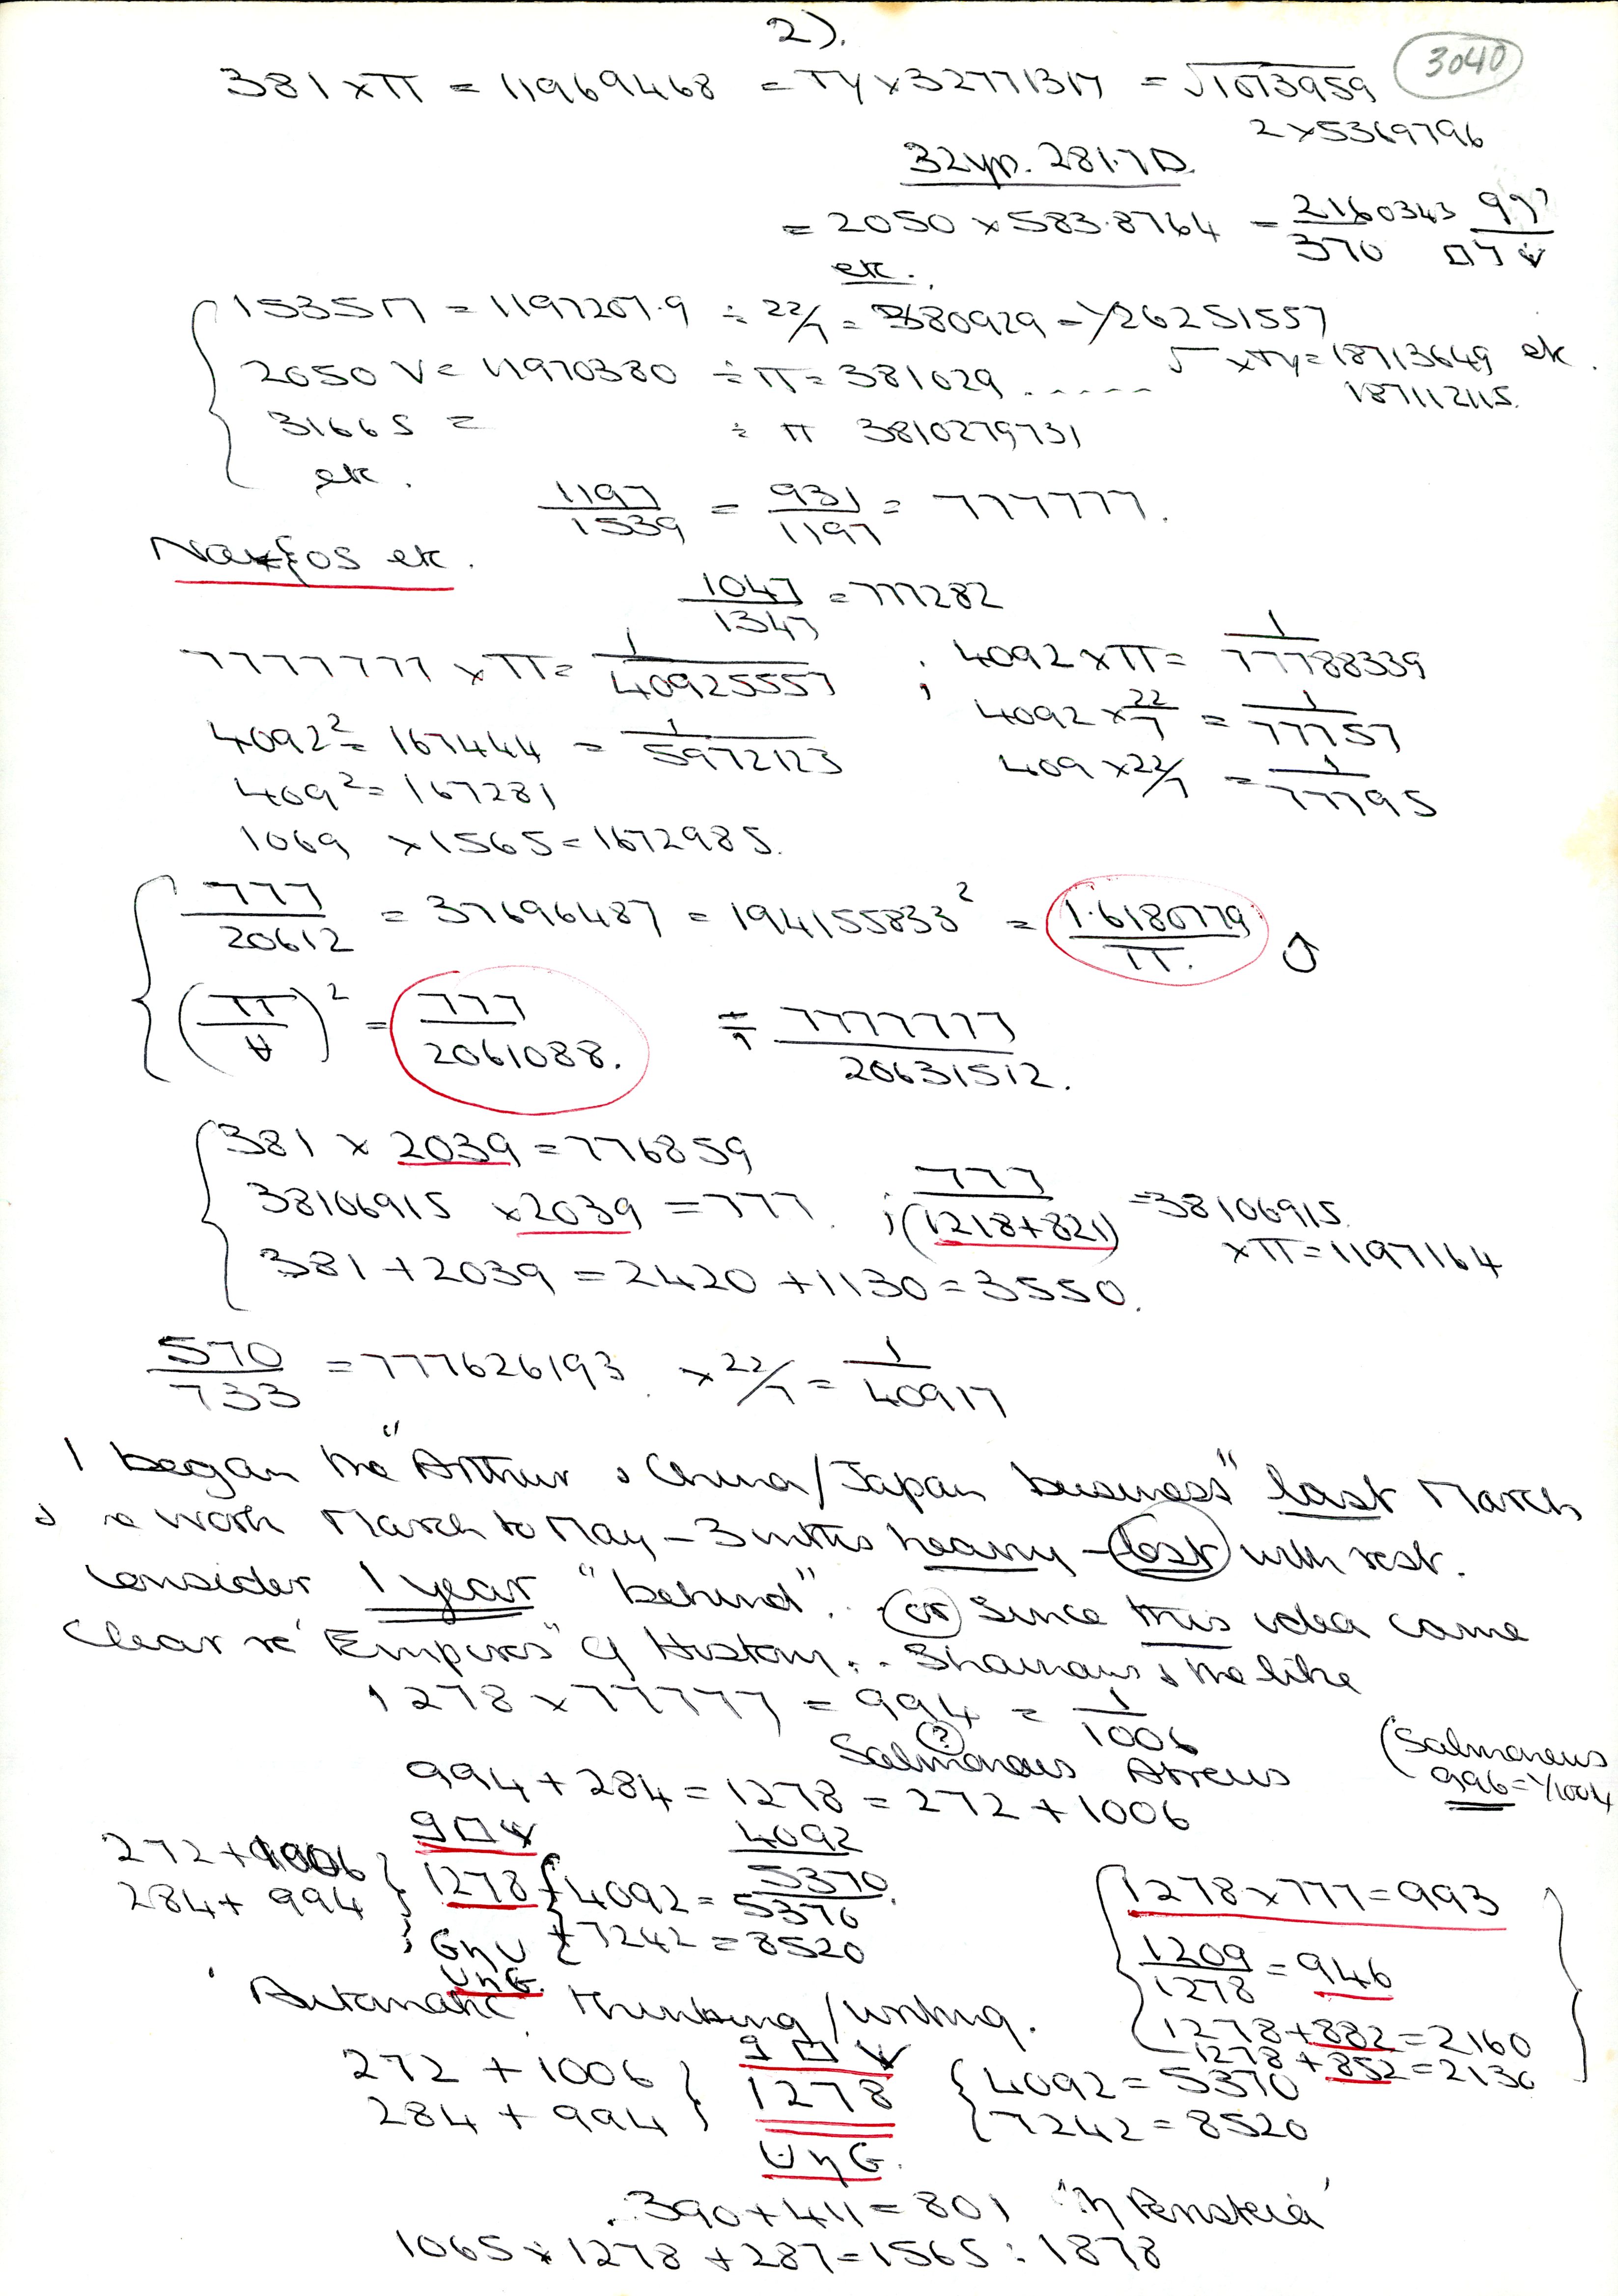 2).
3040
381 × π = 11969468 = TY × 32771317 = √1073959
2 × 5369796
32yr. 281.7D.
= 2050 × 583.8764 = 2160343/370
etc.
1535 = 1197207.9 ÷ 22/7 = 380929 = 1/26251557
√ × TY = 18713649 etc.
2050 V = 11970380 ÷ π = 381029 .....
187112115.
31665 = ÷ π 3810279731
etc.
1197/1539 = 931/1197 = 777777.
etc.
1047/1347 = 777282
7777777 × π = 1/40925557 ; 4092 × π = 1/77788339
4092² = 167444 = 1/5972123
4092 × 22/7 = 1/77757
409² = 167281
409 × 22/7 = 1/77795
1069 × 1565 = 1672985.
777/20612 = 37696487 = 194155833² = 1.6180779/π.
(π/)² = 777/2061088. 7777777/20631512.
381 × 2039 = 776859
38106915 × 2039 = 777. ; 777/(1218+821) = 38106915.
× π = 1197164
381 + 2039 = 2420 + 1130 = 3550.
570/733 = 777626193. × 22/7 = 1/40917
I began the "Arthur & China/Japan business" last March
& work March to May – 3 mths heavy – lost with rest.
Consider 1 year "behind". or since this idea came
clear re "Empires" of History... Shamans & the like
1278 × 77777 = 994 = 1/1006
(?)
Salmoneus Atreus
(Salmoneus
996 = 1/1004
994 + 284 = 1278 = 272 + 1006
272 + 1006
284 + 994
1278
+ 4092 = 5370
+ 7242 = 8520
4092
5370
5376
GηU
UηG.
1278 × 777 = 993
1209/1278 = 946
1278 + 882 = 2160
1278 + 852 = 2130
"Automatic" Thinking/writing.
272 + 1006
284 + 994
1278
4092 = 5370
7242 = 8520
UηG.
390 + 411 = 801
1065 × 1278 + 287 = 1565 : 1878